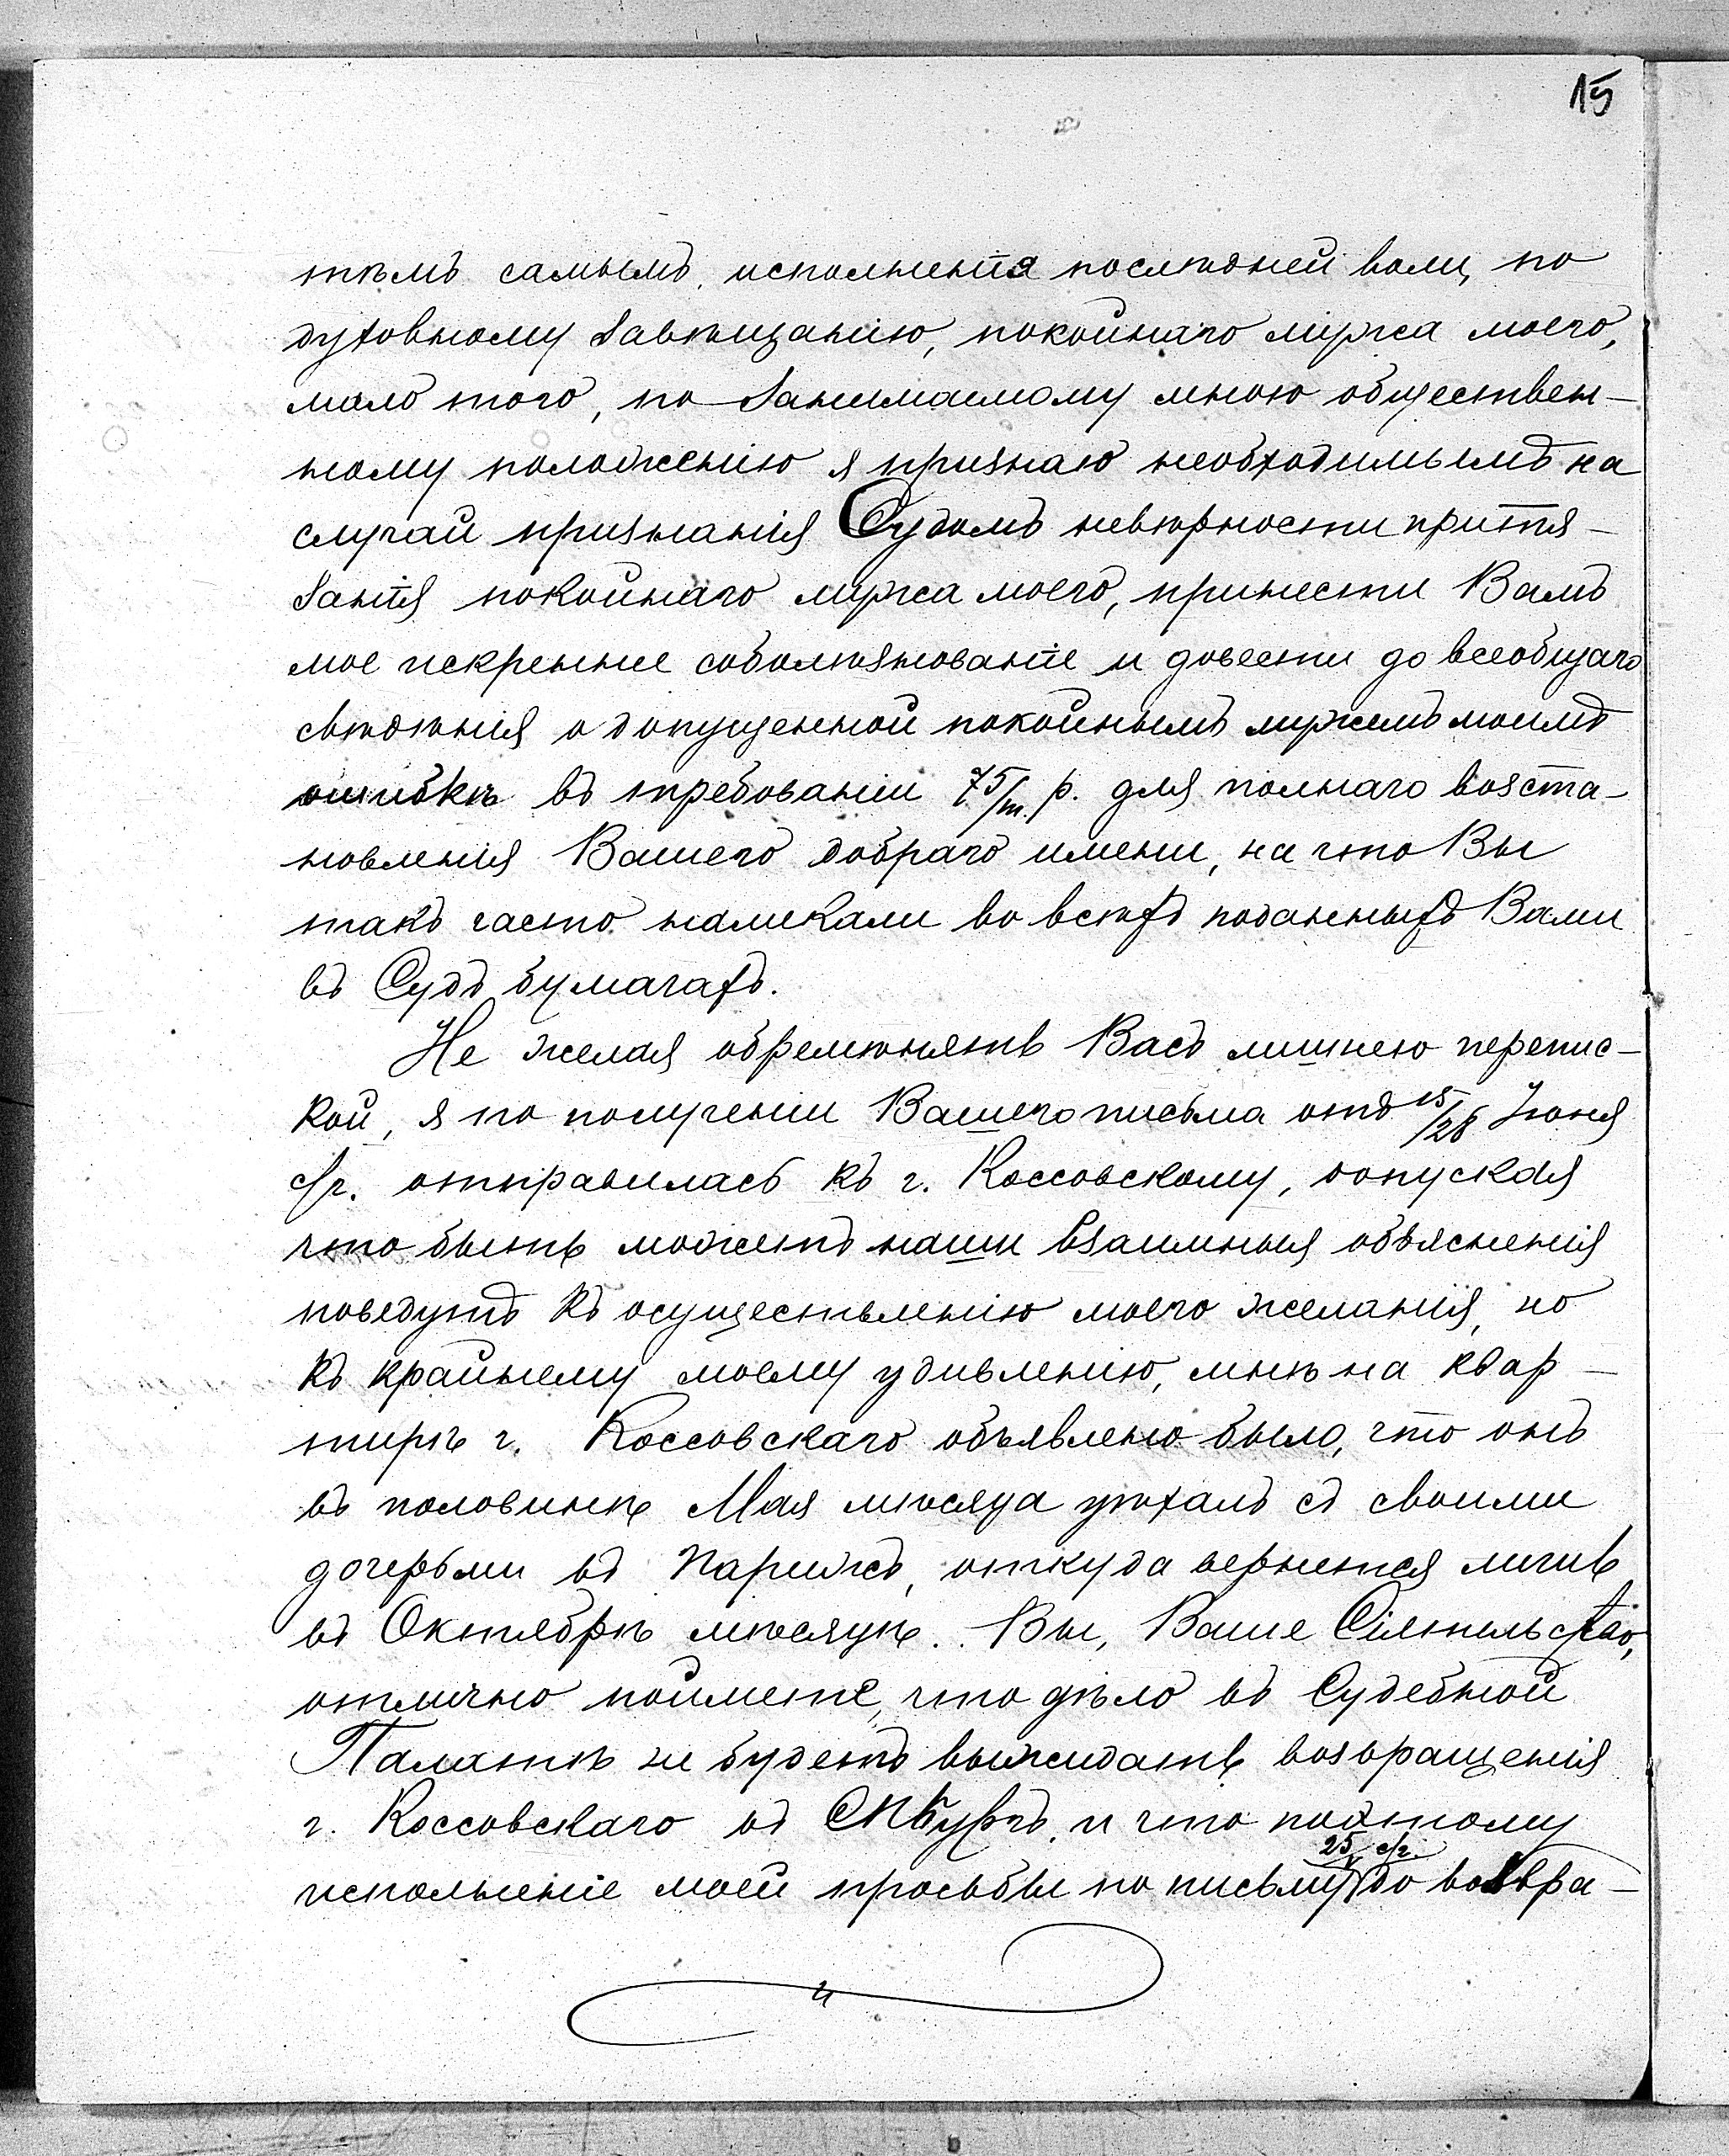 15
тѣмъ самымъ, исполненія послѣдней воли, по
духовному завѣщанію, покойнаго мужа моего,
мало того, по занимаемому мною обществен-
ному положенію я признаю необходимымъ на
случай признанія Судомъ невѣрности притя-
занія покойнаго мужа моего, принести Вамъ
мое искреннее соболѣзнованіе и довести до всеобщаго
свѣдѣнія о допущенной покойнымъ мужемъ моимъ
ошибкѣ въ требованіи 75/т. р. для полнаго возста-
новленія Вашего добраго имени, на что Вы
такъ часто намекали во всѣхъ поданныхъ Вами
въ Судъ бумагахъ.
Не желая обременять Васъ лишнею перепис-
кой, я по полученіи Вашего письма отъ 15/28 Іюня
с/г. отправилась къ г. Коссовскому, допуская
что быть можетъ наши взаимныя объясненія
поведутъ къ осуществленію моего желанія, но
къ крайнему моему удивленію, мнѣ на квар-
тирѣ г. Коссовскаго объявлено было, что онъ
въ половинѣ Мая мѣсяца уѣхалъ съ своими
дочерьми въ Парижъ, откуда вернется лишь
въ Октябрѣ мѣсяцѣ. Вы, Ваше Сіятельство,
отлично поймете, что дѣло въ Судебной
Палатѣ не будетъ выжидать возвращенія
г. Коссовскаго въ СПбургъ, и что поэтому
25/V с/г.
исполненіе моей просьбы по письму до возвра-